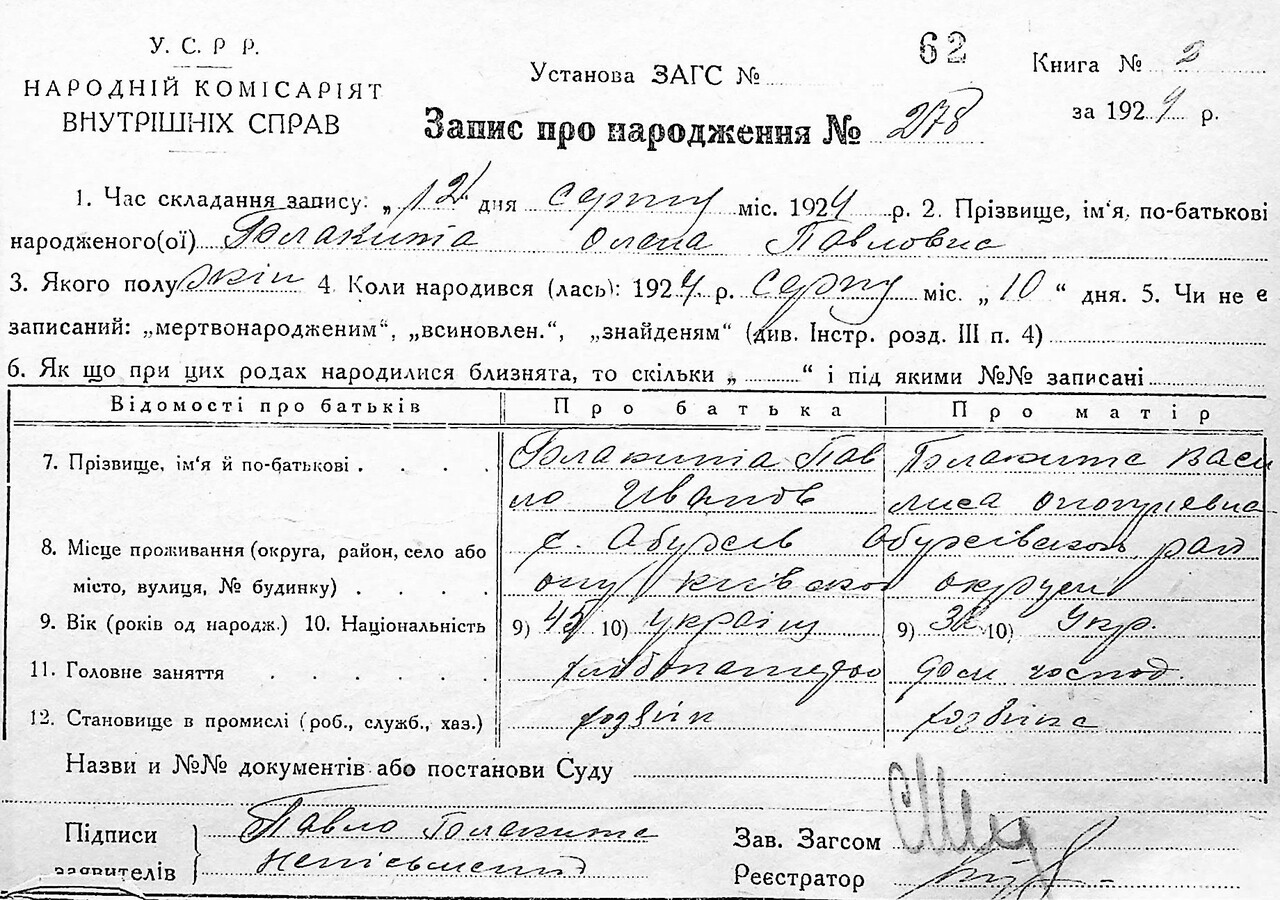 У. С. Р Р.
НАРОДНІЙ КОМІСАРІЯТ
ВНУТРІШНІХ СПРАВ
Установа ЗАГС №
62
Книга № 2
за 1924 р.
Запис про народження № 278
1. Час складання запису: „12“ дня серпня міс. 1924 р. 2. Прізвище, ім'я, по-батькові
народженого(ої) Блакита Олена Павловна
3. Якого полу жін 4. Коли народився (лась): 1924 р. серпня міс. „10“ дня. 5. Чи не є
записаний: „мертвонародженим“, „всиновлен.“, „знайденям“ (див. Інстр. розд. III п. 4)
6. Як що при цих родах народилися близнята, то скільки „ “ і під якими №№ записані
Відомості про батьків Про батька Про матір
7. Прізвище, ім'я й по-батькові . . . . Блакита Пав Блакита Васи
ло Иванов лиса
8. Місце проживання (округа, район, село або с. Обухів Обухівского рай
місто, вулиця, № будинку) . . . . ону київскої округи
9. Вік (років од народж.) 10. Національність 9) 45 10) україн 9) 10) Укр.
11. Головне заняття . . . . . . дом господ.
12. Становище в промислі (роб., служб., хаз.) хозяін
Назви и №№ документів або постанови Суду
Підписи заявителів Павло Блакита
неписьменний
Зав. Загсом
Реєстратор